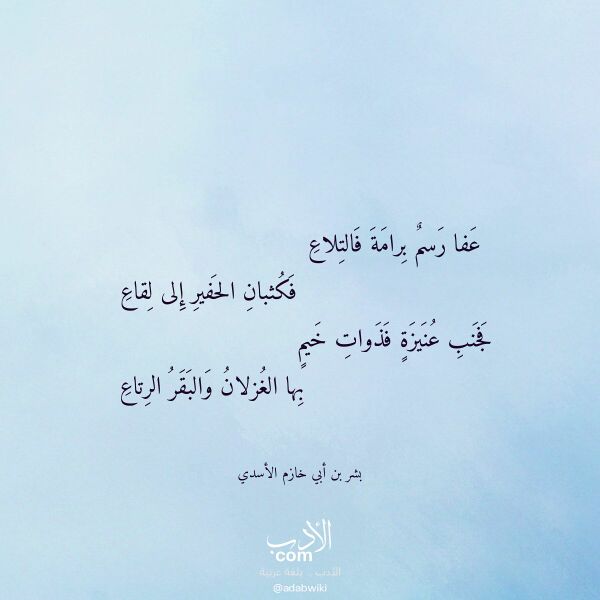 عَفا رَسمٌ بِرامَةَ فَالتِلاعِ
فَكُثبانِ الحَفيرِ إِلى لِقاعِ
فَجَنبِ عُنَيزَةٍ فَذَواتِ خَيمٍ
بِها الغُزلانُ وَالبَقَرُ الرِتاعِ
بشر بن أبي خازم الأسدي
الأدب
com
الأدب .. بلغة عربية
@adabwiki